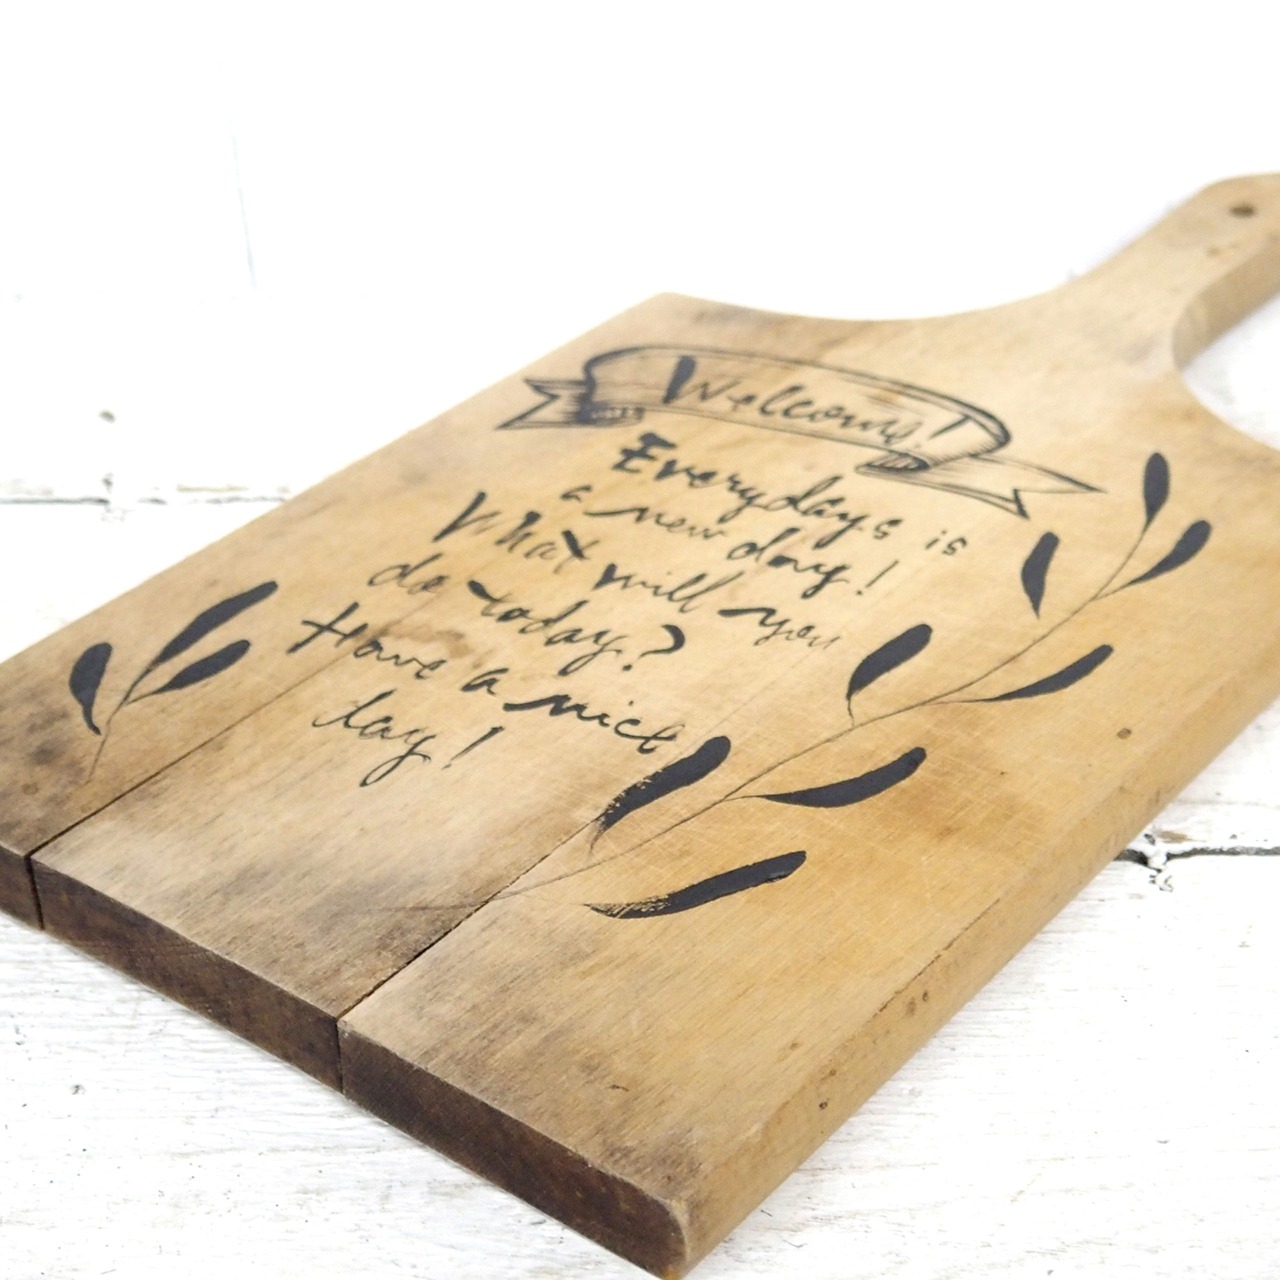 Welcome!
Everydays is
a new day!
What will you
do today?
Have a nice
day!